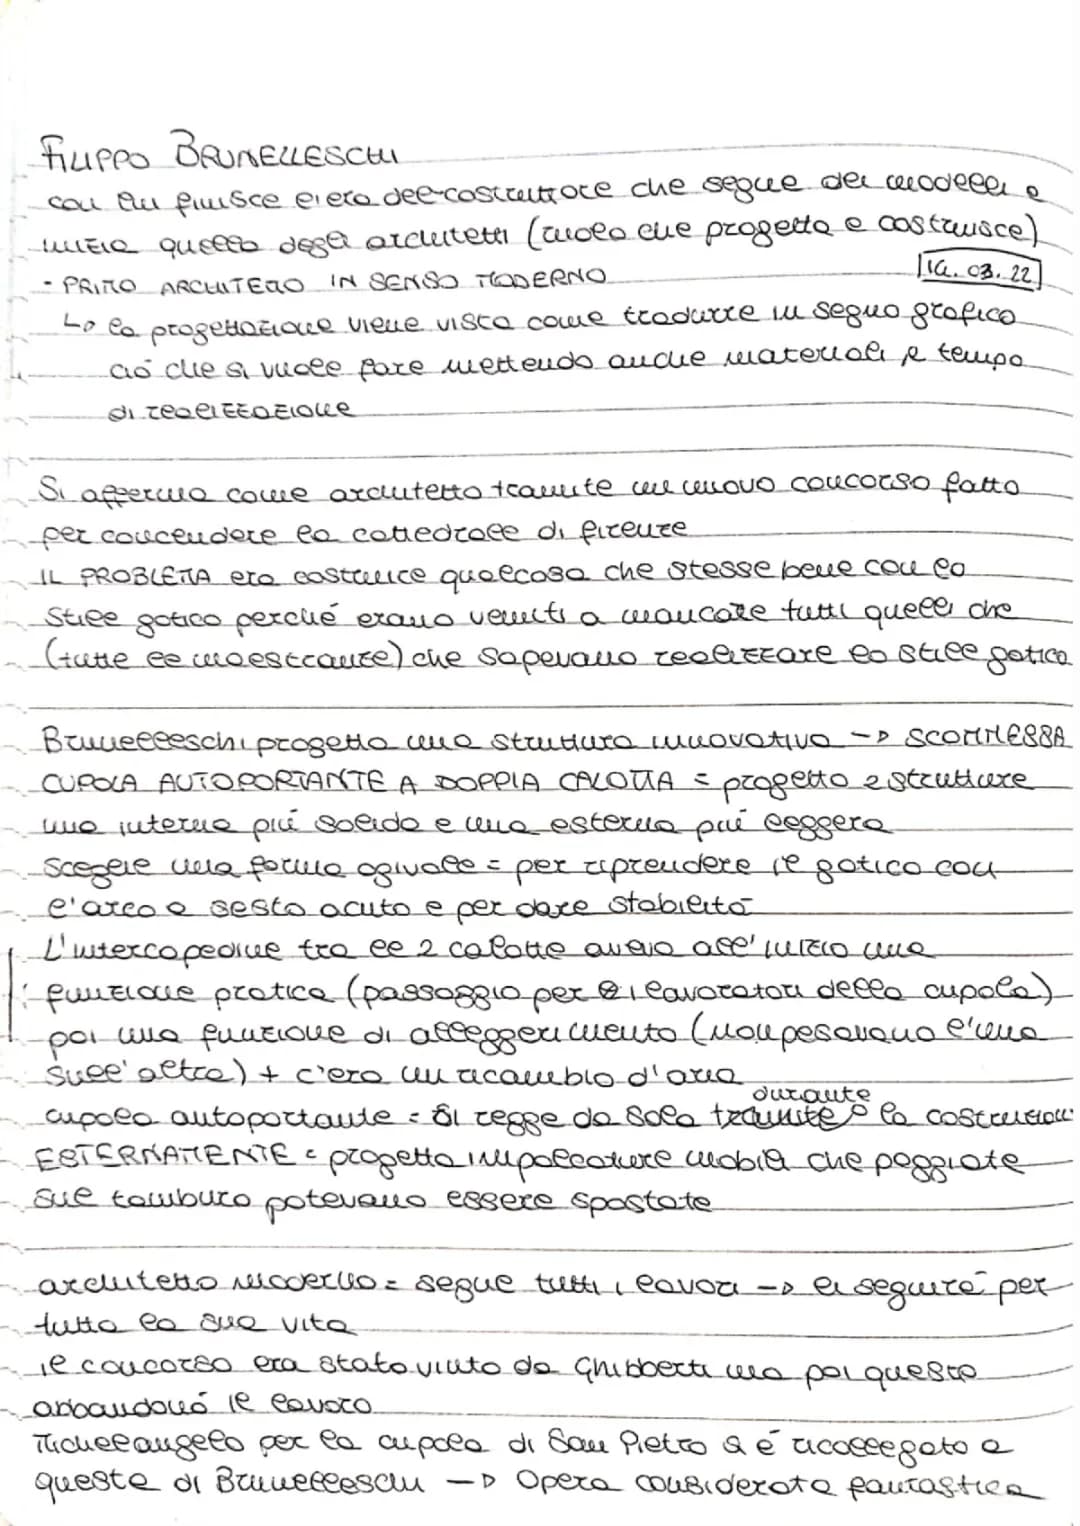 FILIPPO BRUNELLESCHI
con lui finisce l'era del costruttore che segue dei modelli e
inizia quella degli architetti (ruolo che progetta e costruisce)
- PRIMO ARCHITETTO IN SENSO MODERNO
14.03.22
↳ la progettazione viene vista come tradurre in segno grafico
ció che si vuole fare mettendo anche materiali e tempo
di realizzazione
Si afferma come architetto tramite un nuovo concorso fatto
per concendere la cattedrale di firenze
IL PROBLEMA era costruire qualcosa che stesse bene con lo
stile gotico perché erano venuti a mancare tutti quelli che
(tutte le maestranze) che sapevano realizzare lo stile gotico
Brunelleschi progetta una struttura innovativa -> SCOMMESSA
CUPOLA AUTOPORTANTE A DOPPIA CALOTTA = progetto 2 strutture
una interna piú solida e una esterna piú leggera
sceglie una forma ogivale = per riprendere il gotico con
l'arco a sesto acuto e per dare stabilitá
L'intercapedine tra le 2 calotte aveva all'inizio una
funzione pratica (passaggio per i lavoratori della cupola)
poi una funzione di alleggerimento (non pesavano l'una
sull'altra) + c'era un ricambio d'aria
cupola autoportante = si regge da sola durante la costruzione
ESTERNAMENTE = progetta impalcature mobili che poggiate
sul tamburo potevano essere spostate
architetto moderno = segue tutti i lavori -> li seguirá per
tutta la sua vita
il concorso era stato vinto da Ghibberti ma poi questo
abbandonó il lavoro
Michelangelo per la cupola di San Pietro si é ricollegato a
questa di Brunelleschi -> Opera considerata fantastica